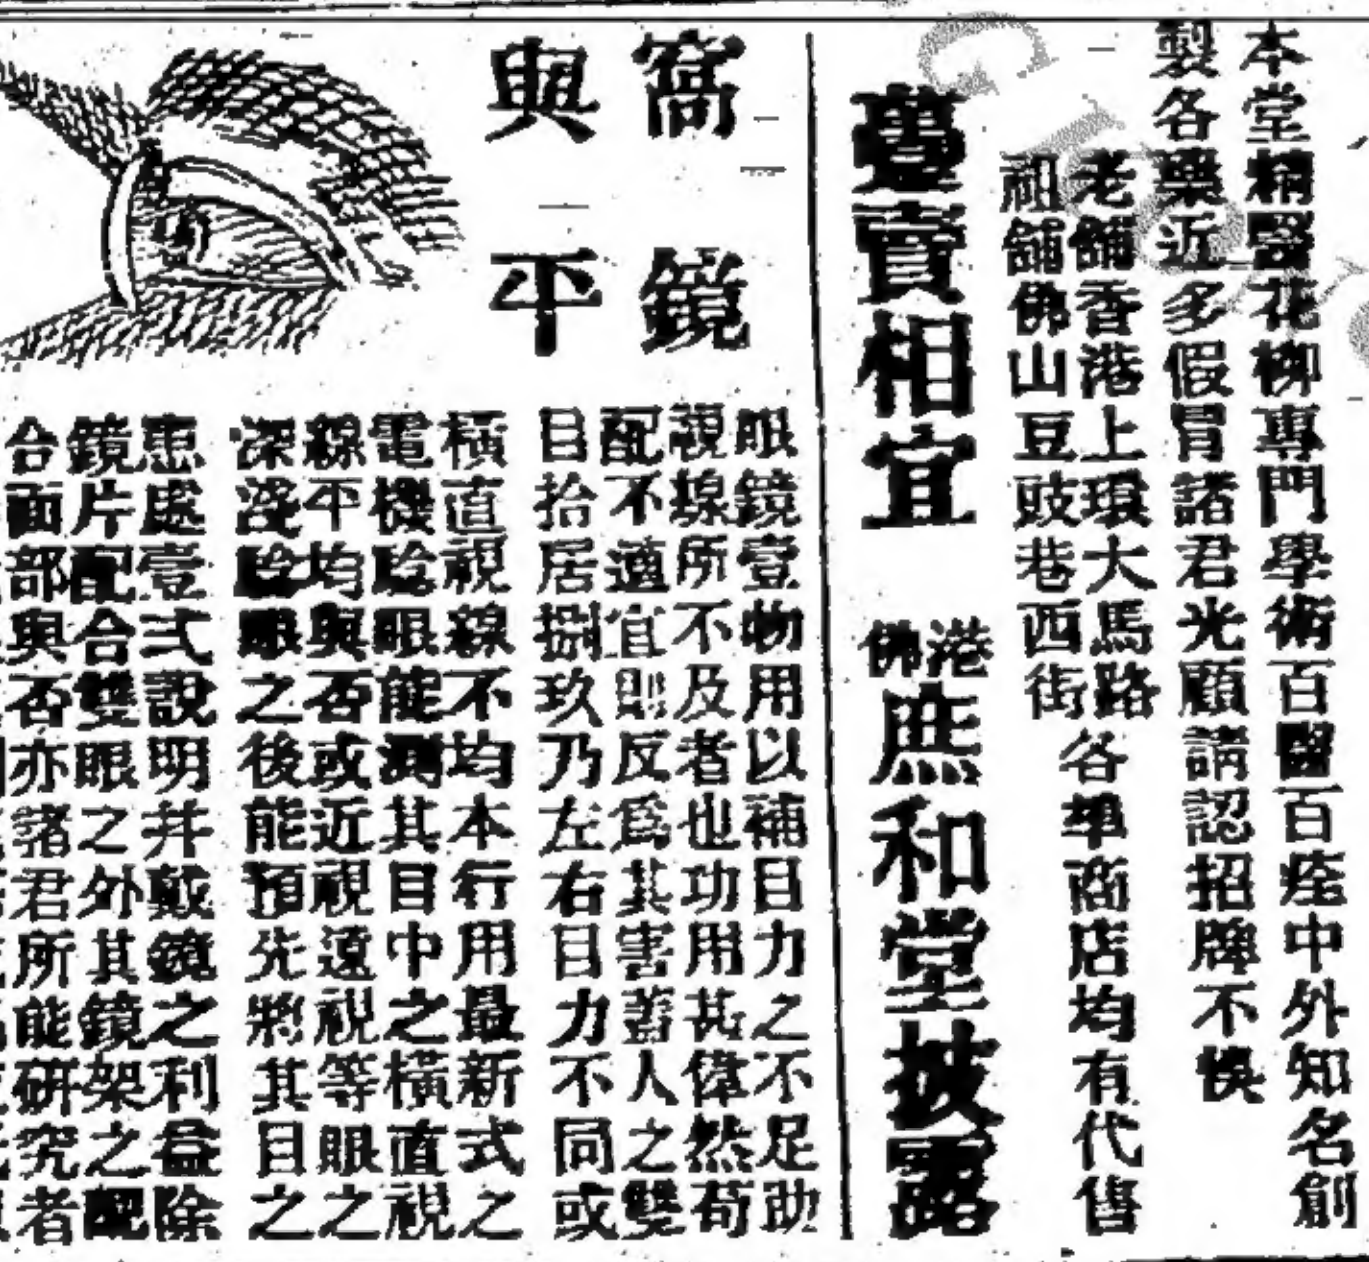 本堂精醫花柳專門學術百醫百痊中外知名創
製各藥近多假冒諸君光顧請認招牌不悞
老舖香港上環大馬路
祖舖佛山豆豉巷西街
各埠商店均有代售
躉賣相宜
港
佛
庶和堂披露
窩鏡
與平
眼鏡壹物用以補目力之不足助
視線所不及者也功用甚偉然苟
配不適宜則反爲其害蓋人之雙
目拾居捌玖乃左右目力不同或
橫直視線不均本行用最新式之
電機驗眼能測其目中之橫直視
線平均與否或近視遠視等眼之
深淺驗眼之後能預先將其目之
患處壹弌說明并戴鏡之利益除
鏡片配合雙眼之外其鏡架之配
合面部與否亦諸君所能研究者